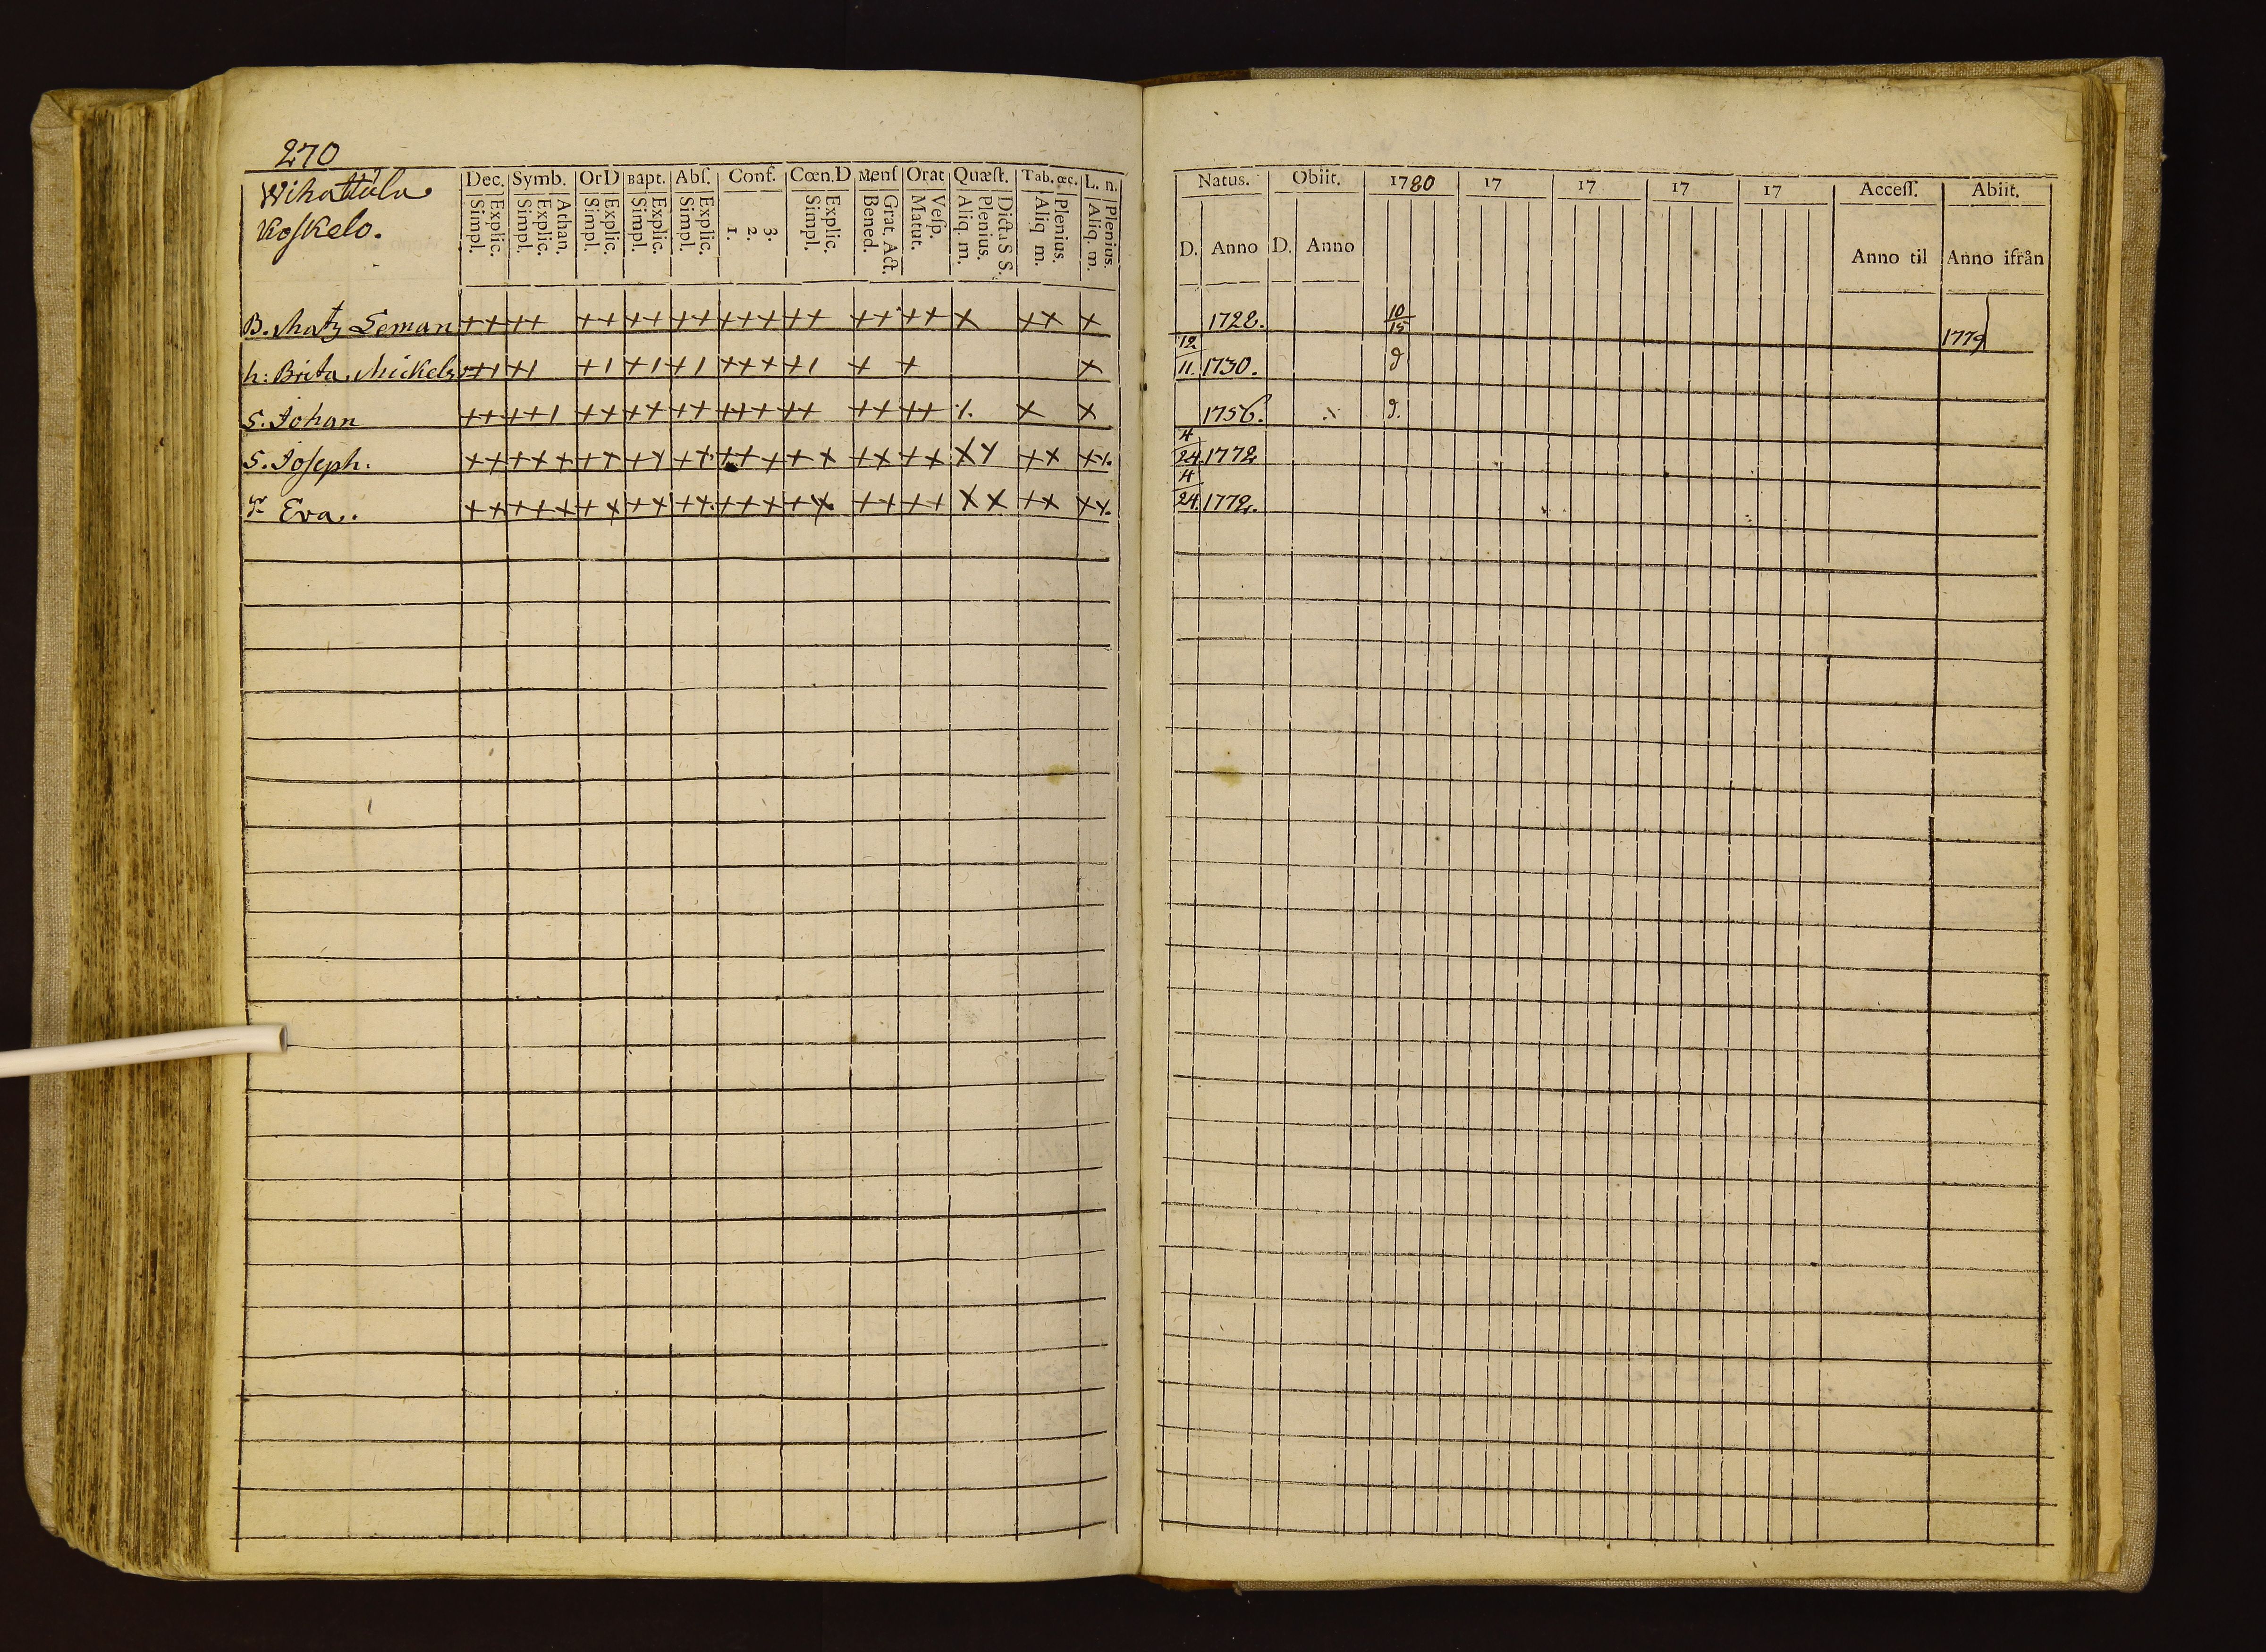 270
Wihattula
Koskelo.
Dec. Symb. Or D Bapt. Abſ. Conf. Cœn. D Menſ Orat Quæſt. Tab. œc. L. n.
Explic. Simpl. Athan. Explic. Simpl. Explic. Simpl. Explic. Simpl. Explic. Simpl. 3. 2. 1. Explic. Simpl. Grat. Act. Bened. Veſp. Matut. Dicta S S. Plenius. Aliq. m. Plenius. Aliq. m. Plenius. Aliq. m.
B. Matz Leman ++ ++ ++ ++ ++ +++ ++ ++ ++ x ++ x
h: Brita Mickels
S. Johan
S. Joſeph.
Eva.
Natus. Obiit. 1780 17 17 17 17 Acceſſ. Abiit.
D. Anno D. Anno Anno til Anno ifrån
1728. 10/15 1779
12/11. 1730.
1756.
4/24. 1772
4/24. 1772.